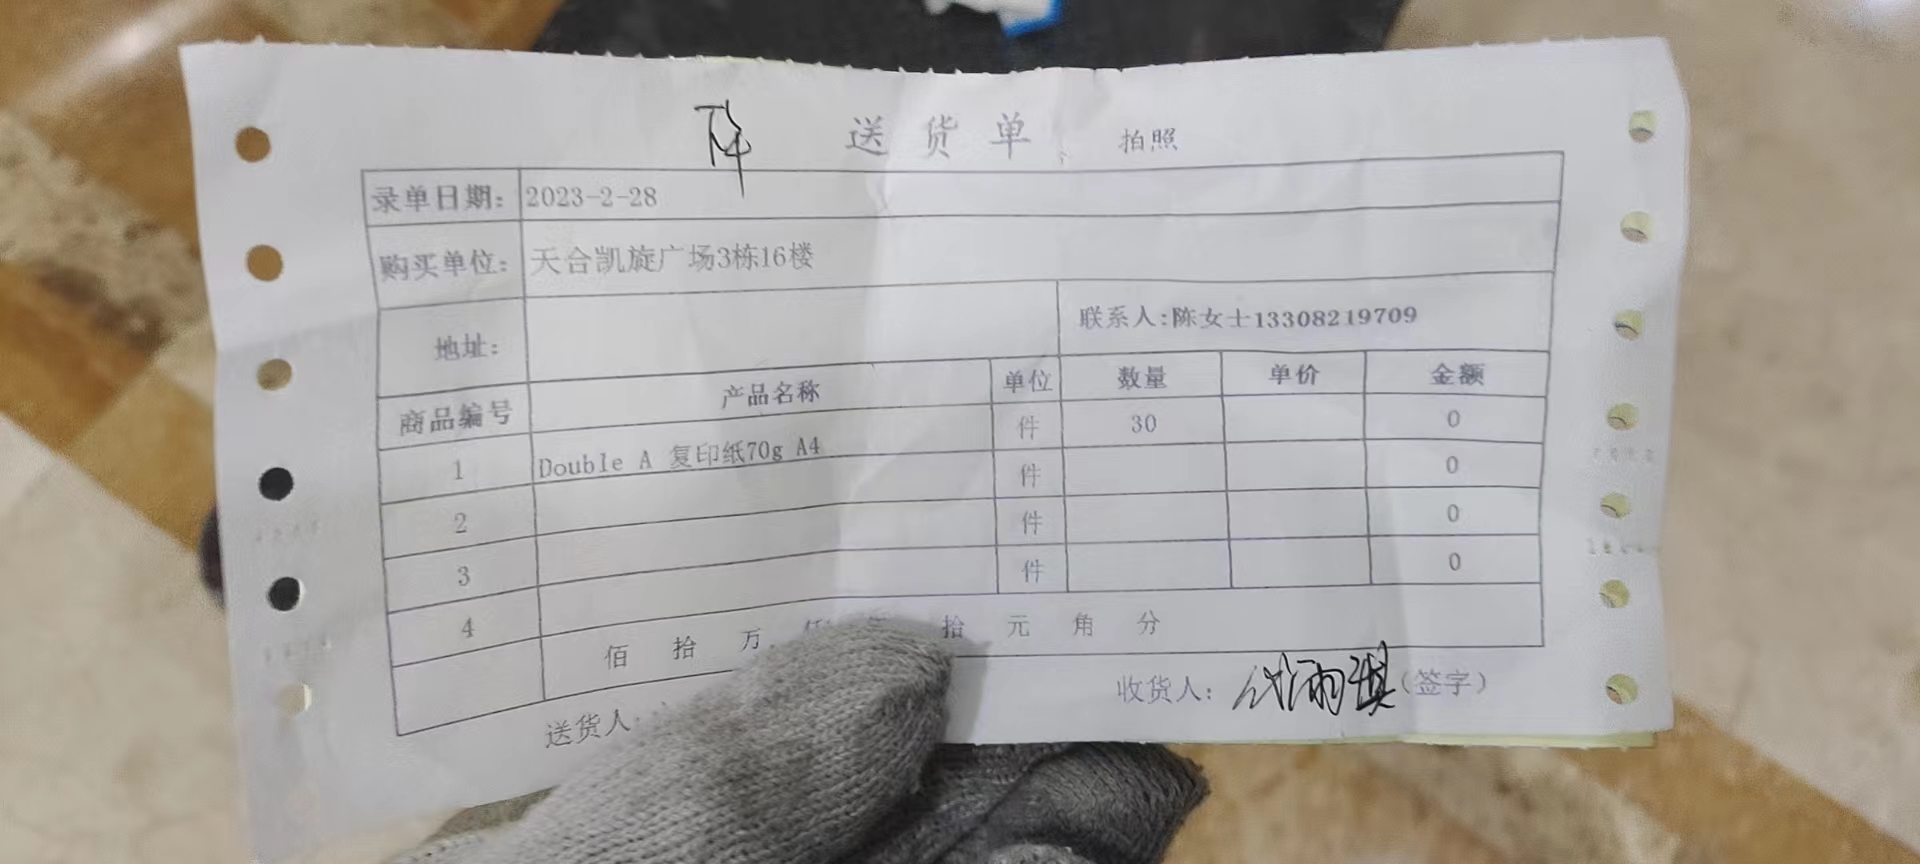 送货单 拍照
录单日期: 2023-2-28
购买单位: 天合凯旋广场3栋16楼
地址: 联系人:陈女士13308219709
商品编号 产品名称 单位 数量 单价 金额
1 Double A 复印纸70g A4 件 30 0
2 件 0
3 件 0
4 件 0
佰 拾 万 拾 元 角 分
送货人: 收货人: (签字)